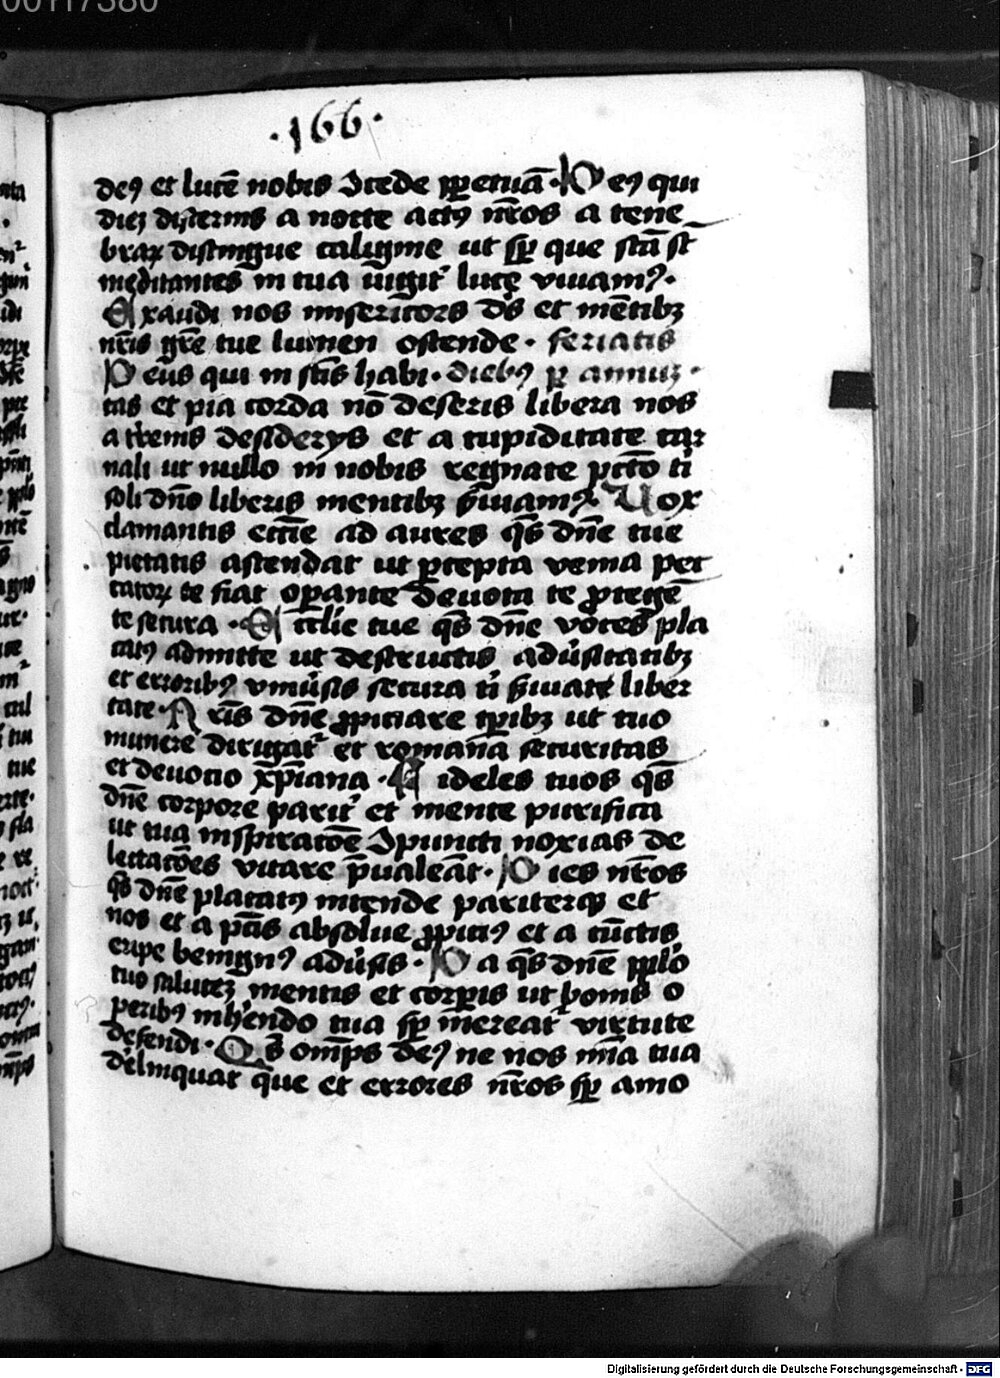 00117380
·166·
deꝰ et lucē nobis ꝯcede ꝑpetuā · Deꝰ qui
dieꝫ discernis a nocte actꝰ nr̄os a tene
braꝝ distingue caligine ut sp̄ que sc̄a st̄
meditantes in tua iugit᷑ luce viuamꝰ ·
Exaudi nos misericors ds̄ et mētibꝫ
nr̄is gr̄e tue lumen ostende · feriatis
Deus qui in sc̄is habi · diebꝰ ꝑ annuꝫ ·
tas et pia corda nō deseris libera nos
a t̄renis desiderijs et a cupiditate car
nali ut nullo in nobis regnate pctō ti
soli dn̄o liberis mentibꝫ s̄uiamꝰ Vox
clamantis ecc̄ie ad aures qs̄ dn̄e tue
pietatis ascendat ut ꝑcepta venia pec
catoꝝ te fiat oꝑante deuota te ꝓtegē
te secura · Ecc̄lie tue qs̄ dn̄e voces pla
catꝰ admitte ut destructis adūsitatibꝫ
et erroribꝰ vniūsis secura ti s̄uiat liber
tate · Nr̄is dn̄e ꝓpiciare tꝑibꝫ ut tuo
munere dirigat᷑ et romana securitas
et deuotio xp̄iana · Fideles tuos qs̄
dn̄e corpore parit᷑ et mente purifica
ut tua inspiratōe ꝯpuncti noxias de
lectatōes vitare p̄ualeāt · Preces nr̄os
qs̄ dn̄e placatꝰ intende pariterqꝫ et
nos et a pc̄tis absolue ꝓpitiꝰ et a cūctis
eripe benignꝰ adūsis · Da qs̄ dn̄e pplo
tuo saluteꝫ mentis et corꝑis ut bonis o
peribꝰ inh̄endo tua sp̄ mereat᷑ virtute
defendi · Qs̄ omp̄s deꝰ ne nos mīa tua
delinquat que et errores nr̄os sp̄ amo
Digitalisierung gefördert durch die Deutsche Forschungsgemeinschaft - DFG